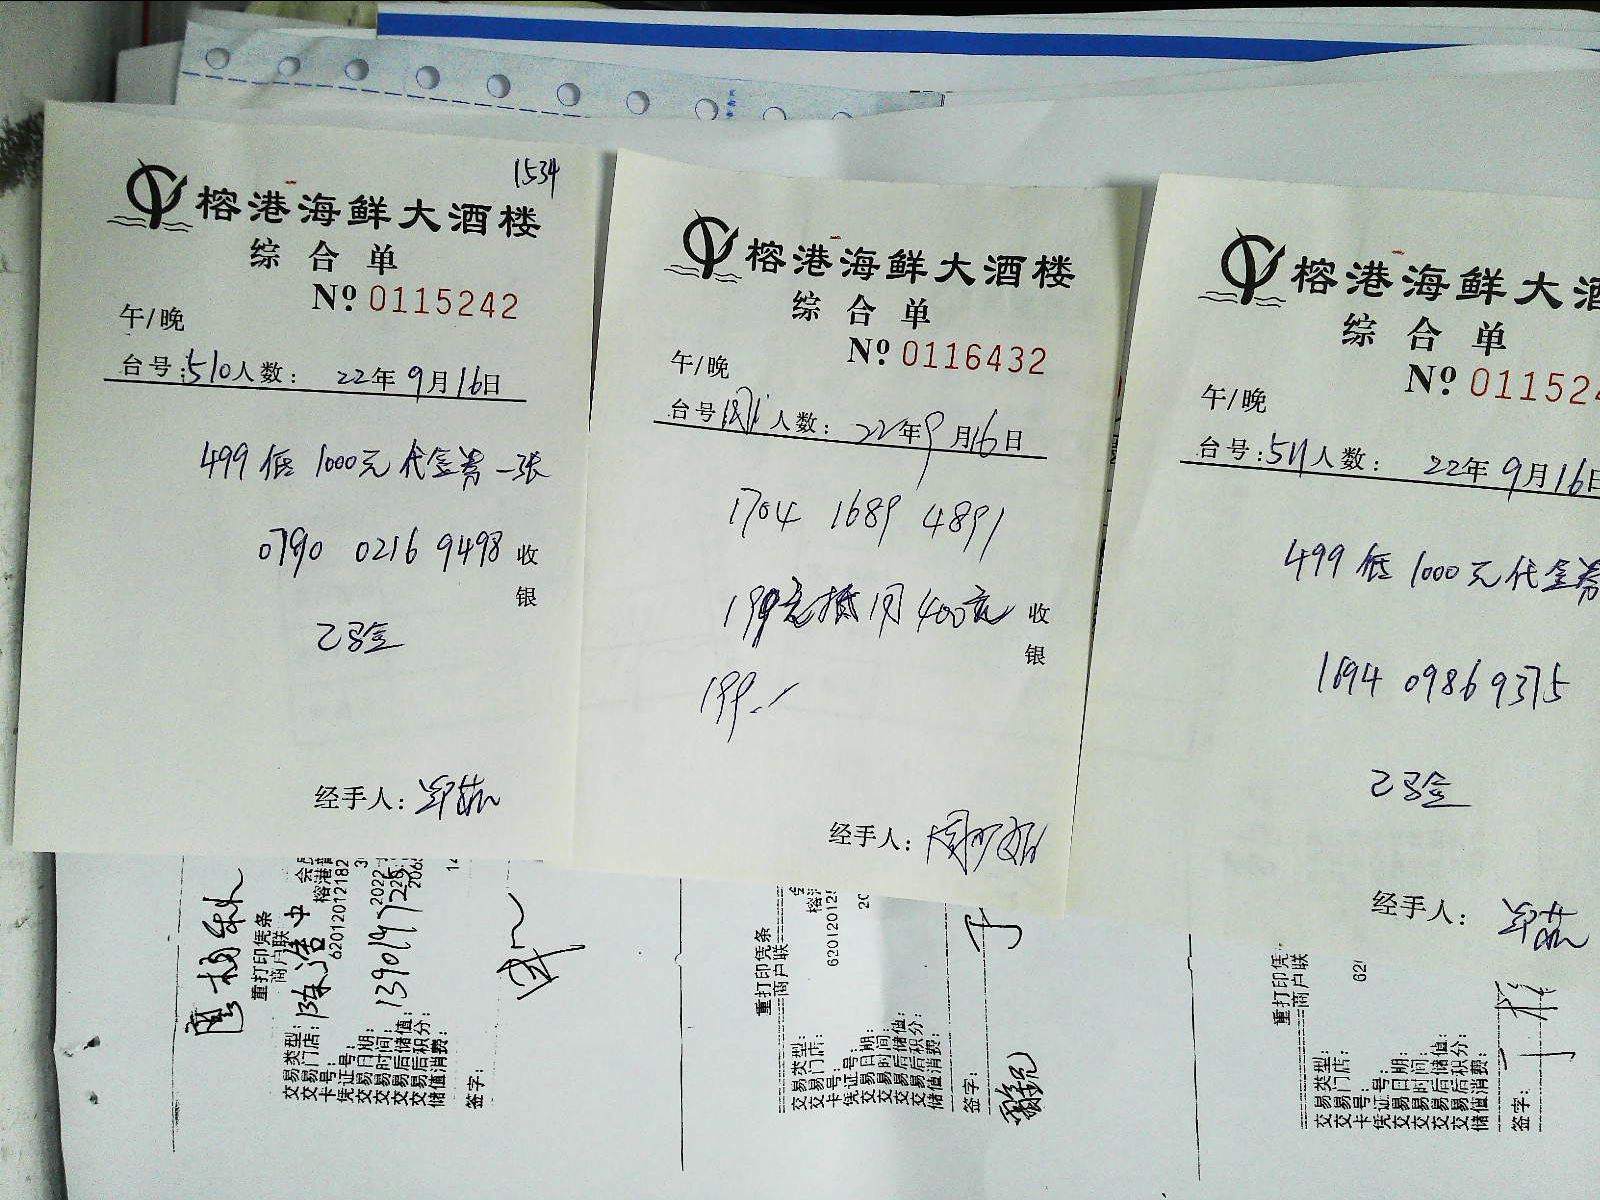 1534
榕港海鲜大酒楼
综合单
№ 0115242
午/晚
台号:510人数: 22年9月16日
499 低 1000元代金券一张
0790 0216 9498
收银
已验
经手人:
榕港海鲜大酒楼
综合单
№ 0116432
午/晚
台号 人数: 22年9月16日
1704 1689 4891
199元抵用400元
收银
199.
经手人:
榕港海鲜大酒
综合单
№ 011524
午/晚
台号:511人数: 22年9月16日
499 低 1000元代金券
1694 0986 9375
已验
经手人:
重打印凭条
商户联
交易类型:
交易门店:
卡号:
凭证号:
交易日期:
交易时间:
交易后储值:
交易后积分:
储值消费:
签字:
62012012182
陈浩中
重打印凭条
商户联
交易类型:
交易门店:
卡号:
凭证号:
交易日期:
交易时间:
交易后储值:
交易后积分:
储值消费:
签字:
62012012
重打印凭
商户联
交易类型:
交易门店:
卡号:
凭证号:
交易日期:
交易时间:
交易后储值:
交易后积分:
储值消费:
签字:
62